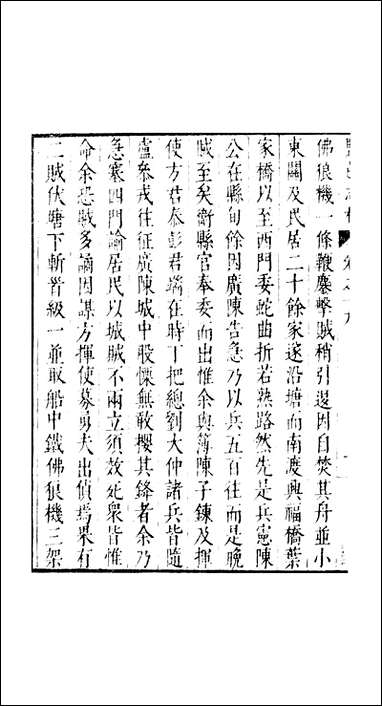 佛狼機一條鞭鏖擊賊稍引退因自焚其舟並小
東關及民居二十餘家遂沿塘而南度興福橋葉
家橋以至西門委蛇曲折若熟路然先是兵憲陳
公在縣旬餘因廣陳告急乃以兵五百往而是晚
賊至矣衛縣官奉委而出惟余與簿陳子鍊及揮
使方君奉彭君端在時丁把總劉大仲諸兵皆隨
盧叅戎往征廣陳城中股慄無敢攖其鋒者余乃
急塞四門諭居民以城賊不兩立須效死衆皆惟
命余恐賊多謫因謀方揮使募勇夫出偵焉果有
二賊伏塘下斬晋級一並取船中鐵佛狼機三架